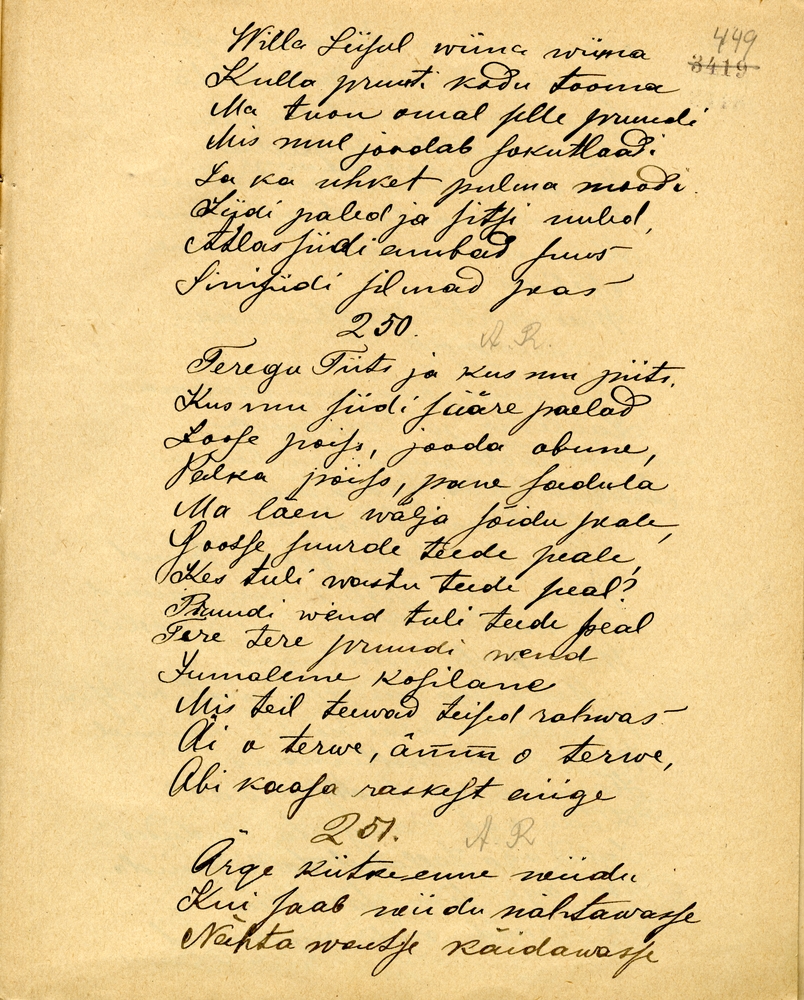 449
3419
Willa Siisul wiina wiima
Kulla pruuti kodu tooma
Ma tuon omal selle pruudi
Mis mul joodab sokutlaadi
Ja ka uhket pulma moodi.
Siidi paled ja sitsi uuled,
Atlassiidi ambad suus
Sinisiidi silmad peas
250.
A. R.
Teregu Tiits ja kus mu piits,
Kus mu siidi sääre paelad
Loose poiss, jooda obune,
Palka poiss, pane sadula
Ma läen wälja sõidu peale,
Gootsse suurde teede peale,
Kes tuli wastu teede peal?
Pruudi wend tuli teede peal
Tere tere pruudi wend
Jumaleme kosilane
Mis teil teewad teised rahwas
Äi o terwe, ämm o terwe,
Abi kaasa raskest aiige
251.
A. R
Ärge kiitke enne neiidu
Kui saab neiidu nähtawasse
Nähta wautsje käidawasse